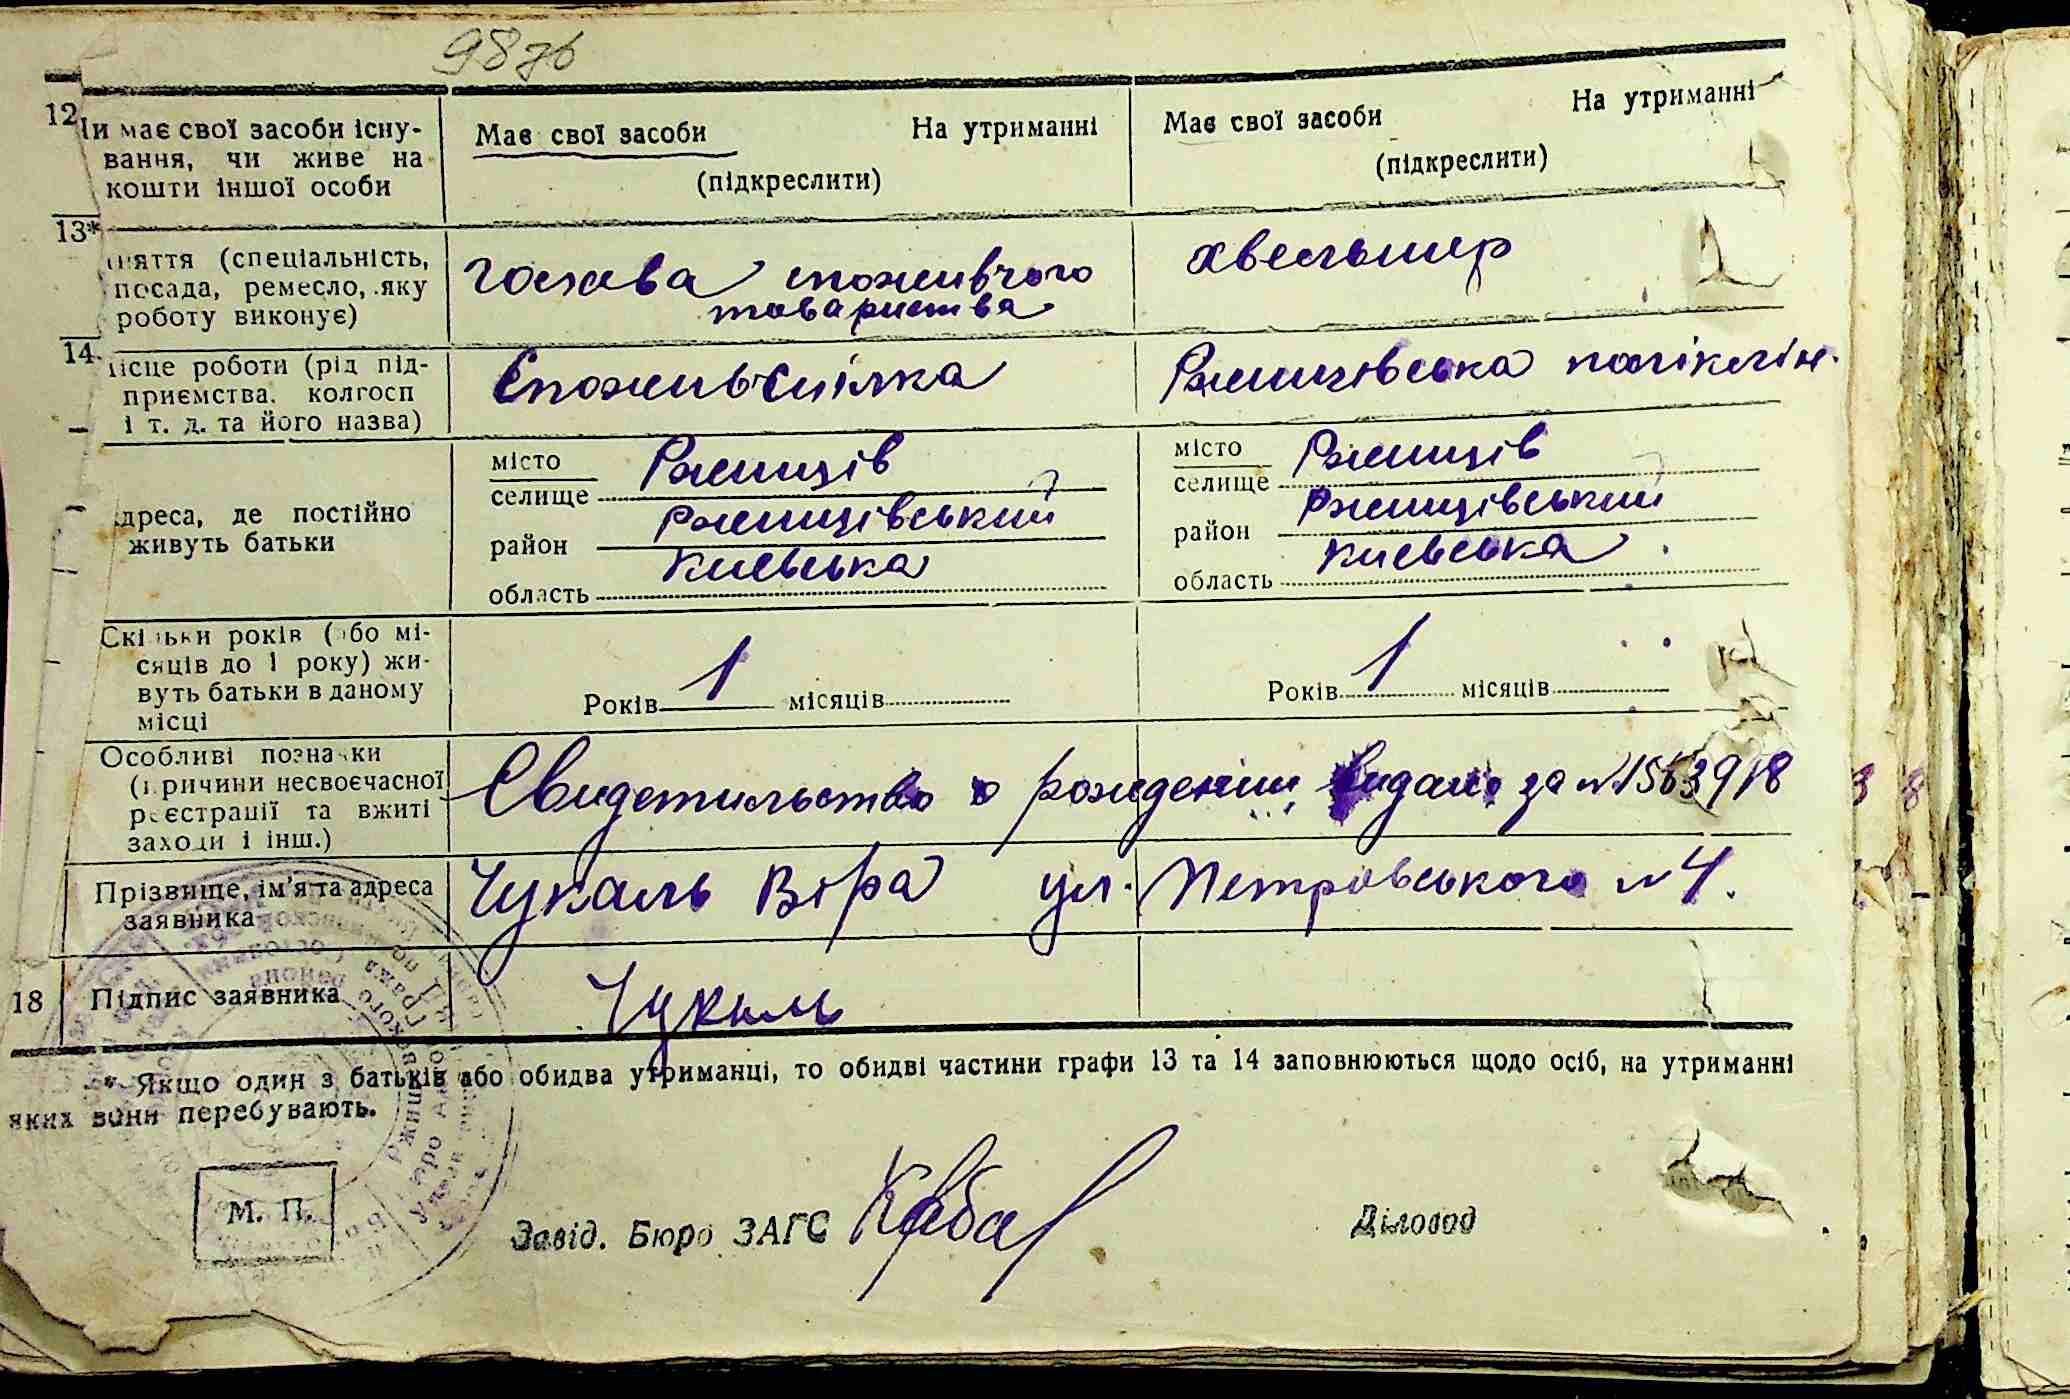 98зв
12
Чи має свої засоби існу-
вання, чи живе на
кошти іншої особи
Має свої засоби На утриманні
(підкреслити)
Має свої засоби На утриманні
(підкреслити)
13*
няття (спеціальність,
посада, ремесло, яку
роботу виконує)
голова споживчого
товариства
хвельшер
14
місце роботи (рід під-
приємства, колгосп
і т. д. та його назва)
Споживспілка
Ржищівська поліклін.
дреса, де постійно
живуть батьки
місто Ржищів
селище
район Ржищівський
область Киевська
місто Ржищів
селище
район Ржищівський
область Киевська
Скільки років (або мі-
сяців до 1 року) жи-
вуть батьки в даному
місці
Років 1 місяців
Років 1 місяців
Особливі познаки
(причини несвоєчасної
реєстрації та вжиті
заходи і інш.)
Свидетильство о рождении видано за №
Прізвище, ім'я та адреса
заявника
Чукаль Віра ул. Петровського № 4.
18 Підпис заявника
Чукаль
* Якщо один з батьків або обидва утриманці, то обидві частини графи 13 та 14 заповнюються щодо осіб, на утриманні
яких вони перебувають.
М. П.
Завід. Бюро ЗАГС
Діловод